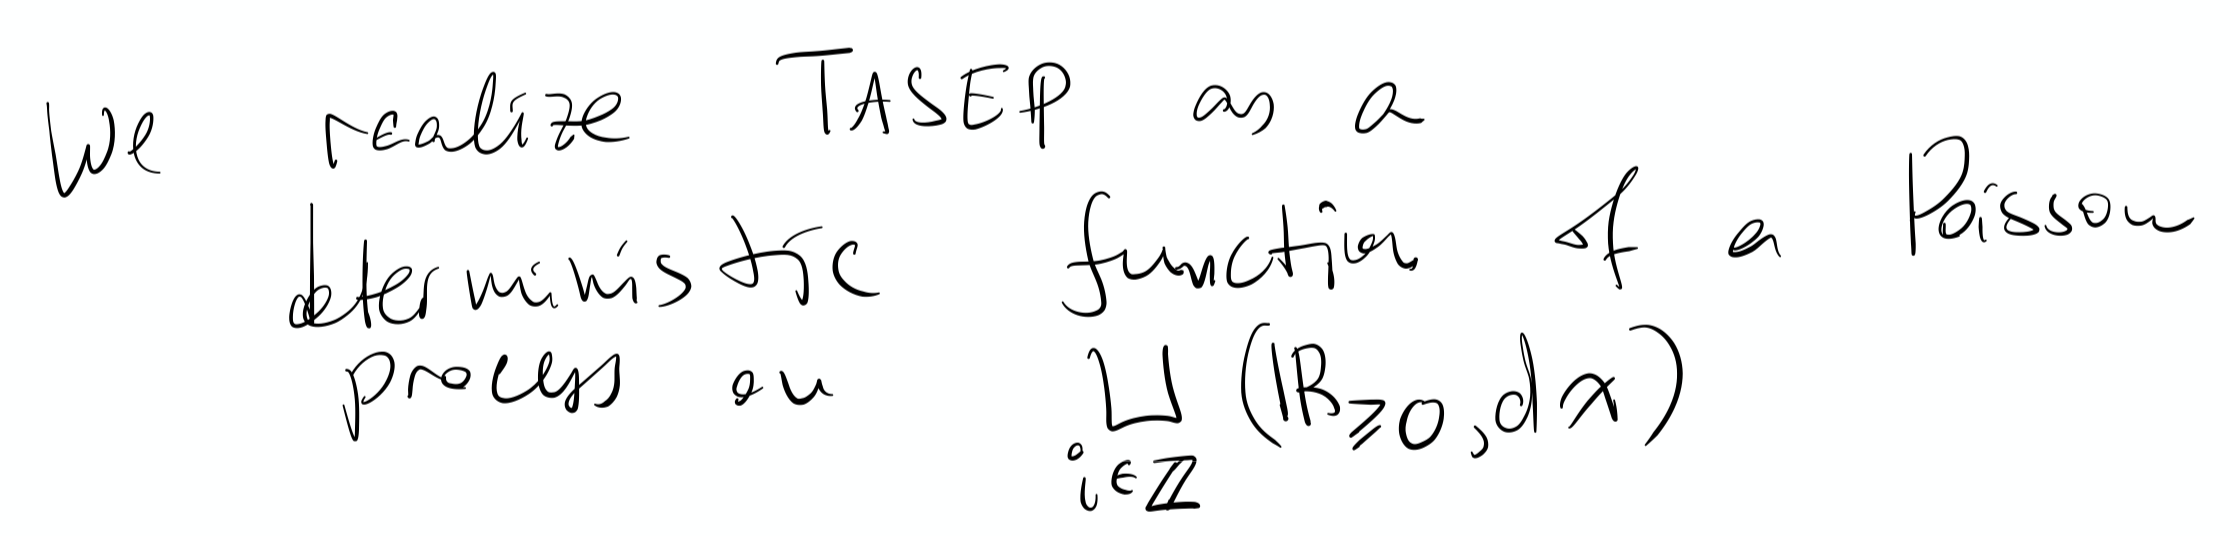 We realize TASEP as a
deterministic function of a Poisson
process on ⊔ (ℝ≥0, dx)
i∈ℤ